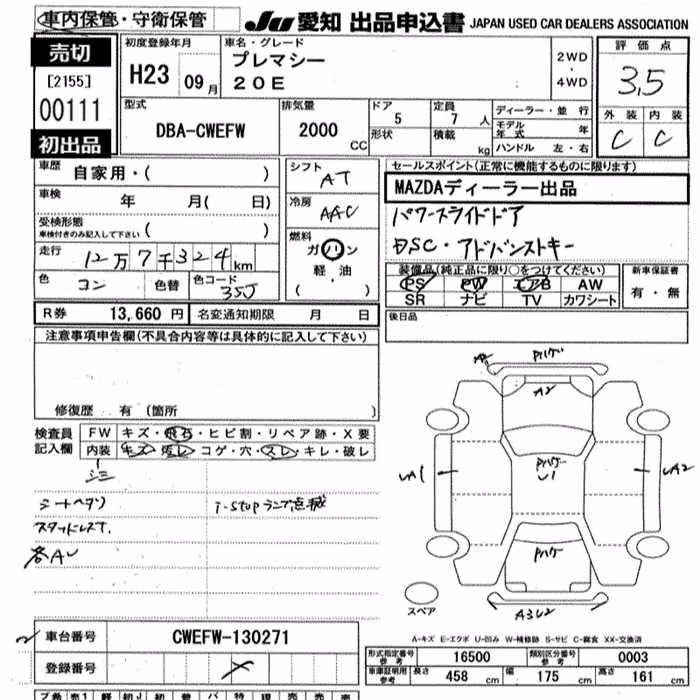 車内保管・守衛保管
JU 愛知 出品申込書 JAPAN USED CAR DEALERS ASSOCIATION
売切
[2155]
00111
初出品
初度登録年月
H23 09月
車名・グレード
プレマシー
20E
2WD
・
4WD
評価点
3,5
外装 内装
C C
型式
DBA-CWEFW
排気量
2000 CC
ドア
5
形状
定員
7 人
積載 kg
ディーラー・並行
モデル年式 年
ハンドル 左・右
車歴
自家用・( )
車検
年 月( 日)
受検形態
車検付きのみ記入して下さい ( )
走行
12万7千324km
色
コン
色替
色コード
35J
シフト
AT
冷房
AAC
燃料
ガソリン
軽・油
( )
セールスポイント(正常に機能するものに限ります)
MAZDAディーラー出品
パワースライドドア
DSC・アドバンストキー
装備品(純正品に限り○をつけてください)
PS PW エアB AW
SR ナビ TV カワシート
新車保証書
有・無
R券 13,660円 名変通知期限 月 日
後日品
注意事項申告欄(不具合内容等は具体的に記入して下さい)
修復歴 有 (箇所 )
検査員
記入欄
FW キズ・飛石・ヒビ割・リペア跡・X要
内装 キズ・汚レ・コゲ・穴・スレ・キレ・破レ
シミ
シートヘタリ
スタッドレスT.
各AU
i-stopランプ点滅
Pハゲ
A2
Pハゲ
U1
Pハゲ
UA1
UA2
A3U2
スペア
A-キズ E-エクボ U-凹み W-補修跡 S-サビ C-腐食 XX-交換済
車台番号 CWEFW-130271
登録番号
形式指定番号
参考
16500
類別区分番号
参考
0003
車庫証明用
参考
長さ 458 cm 幅 175 cm 高さ 161 cm